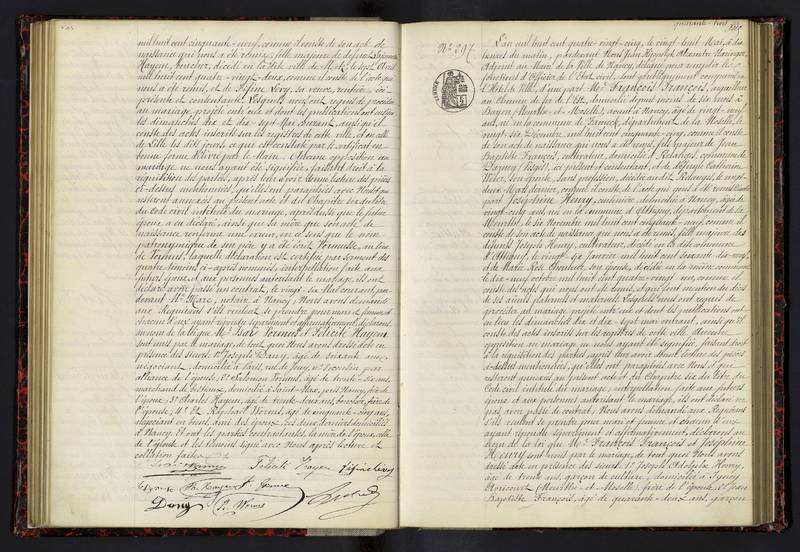 mil huit cent cinquante-neuf, comme il conste de son acte de
naissance qui nous a été remis, fille majeure de défunt
Hayem, boucher, décédé en la dite ville de le sept Avril
mil huit cent quatre-vingt-deux, comme il conste de l'acte qui
nous a été remis, et de Joséfine Lévy, sa veuve, rentière, ici
présente et consentante. Lesquels nous ont requis de procéder
au mariage projeté entre eux et dont les publications ont eu lieu
les dimanches dix et dix-sept Mai courant, ainsi qu'il
conste des actes inscrits sur les registres de cette ville, et en celle
de Lille les dits jours, ce qui est constaté par le certificat en
bonne forme délivré par le Maire. Aucune opposition au
mariage ne nous ayant été signifiée, faisant droit à la
réquisition des parties, après leur avoir donné lecture des pièces
ci-dessus mentionnées, qu'elles ont paraphées avec Nous et qui
resteront annexées au présent acte et du Chapitre six du titre
du Code civil intitulé du mariage, après aussi que le futur
époux a eu déclaré, ainsi que sa mère que son acte de
naissance renferme une erreur, en ce sens que le nom
patronymique de son père y a été écrit Vormusse, au lieu
de Vormus, laquelle déclaration est certifiée par serment des
quatre témoins ci-après nommés, interpellation faite aux
futurs époux et aux personnes autorisant le mariage, ils ont
déclaré avoir passé un contrat, le vingt-six Mai courant, par
devant Me Marc, notaire à Nancy. Nous avons demandé
aux Requérants s'ils veulent se prendre pour mari et femme, et
chacun d'eux ayant répondu séparément et affirmativement, déclarons
au nom de la loi que Mr Vormus et Félicité Hayem
sont unis par le mariage, de tout quoi Nous avons dressé acte en
présence des sieurs, 1° Joseph Dany, âgé de soixante ans,
négociant, domicilié à Paris, rue de Jouy, n° , cousin par
alliance de l'époux, 2° Salomon Vormus, âgé de trente-six ans,
marchand de bestiaux, domicilié à Saint-Max, près Nancy, frère de
l'époux, 3° Charles Hayem, âgé de trente-deux ans, boucher, frère de
l'épouse, 4° Et Raphaël Worms, âgé de cinquante-cinq ans,
négociant en biens, ami des époux, ces deux derniers domiciliés
à Nancy. Et ont les parties contractantes, la mère de l'époux, celle
de l'épouse et les témoins signé avec Nous après lecture et
collation faites.
Félicité Hayem Joséfine Lévy
Ch. Hayem
Dany R. Worms
quarante-trois
N° 297
L'an mil huit cent quatre-vingt-cinq, le vingt-huit Mai, à dix
heures du matin, pardevant Nous Jean Hippolyte Alexandre
Adjoint au Maire de la Ville de Nancy, délégué pour remplir les
fonctions d'Officier de l'état civil, sont publiquement comparus en
l'Hôtel de Ville, d'une part Mr François François,
au Chemin de fer de l'Est, domicilié depuis moins de six mois à
Bayon, (Meurthe-et-Moselle), avant à Nancy, âgé de vingt-neuf
ans, né en la commune de , département de la Moselle, le
vingt-six Décembre mil huit cent cinquante-cinq, comme il conste
de son acte de naissance qui nous a été remis, fils majeur de Jean
Baptiste François, cultivateur, domicilié à Rélanges, commune de
Darney (Vosges), ici présent et consentant, et de défunte Catherine
, son épouse, sans profession, décédée au dit Rélanges, le vingt-
deux Mars dernier, comme il conste de l'acte qui nous a été remis. D'autre
part Joséphine Henry, cuisinière, domiciliée à Nancy, âgée de
vingt-cinq ans, née en la commune d'Attigny, département de la
Meurthe, le six Novembre mil huit cent cinquante-neuf, comme il
conste de son acte de naissance, qui nous a été remis, fille majeure des
défunts Joseph Henry, cultivateur, décédé en la dite commune
d'Attigny, le vingt-six Janvier mil huit cent soixante-dix-neuf,
et de Marie Rose , son épouse, décédée en la même commune
le dix-neuf octobre mil huit cent quatre-vingt-un, comme il
conste des actes qui nous ont été remis, et qui font mention du décès
de ses aïeuls paternels et maternels. Lesquels nous ont requis de
procéder au mariage projeté entre eux et dont les publications ont
eu lieu les dimanches dix et dix-sept mai courant, ainsi qu'il
conste des actes inscrits sur les registres de cette ville. Aucune
opposition au mariage ne nous ayant été signifiée, faisant droit
à la réquisition des parties, après leur avoir donné lecture des pièces
ci-dessus mentionnées, qu'elles ont paraphées avec Nous et qui
resteront annexées au présent acte et du Chapitre six du titre du
Code civil intitulé du mariage, interpellation faite aux futurs
époux et aux personnes autorisant le mariage, ils ont déclaré ne
pas avoir passé de contrat. Nous avons demandé aux Requérants
s'ils veulent se prendre pour mari et femme et chacun d'eux
ayant répondu séparément et affirmativement, déclarons au
nom de la loi que Mr François François et Joséphine
Henry sont unis par le mariage, de tout quoi Nous avons
dressé acte en présence des sieurs, 1° Joseph Adolphe Henry,
âgé de trente ans, garçon de culture, domicilié à
(Meurthe-et-Moselle), frère de l'épouse, 2° Jean
Baptiste François, âgé de quarante-deux ans, garçon